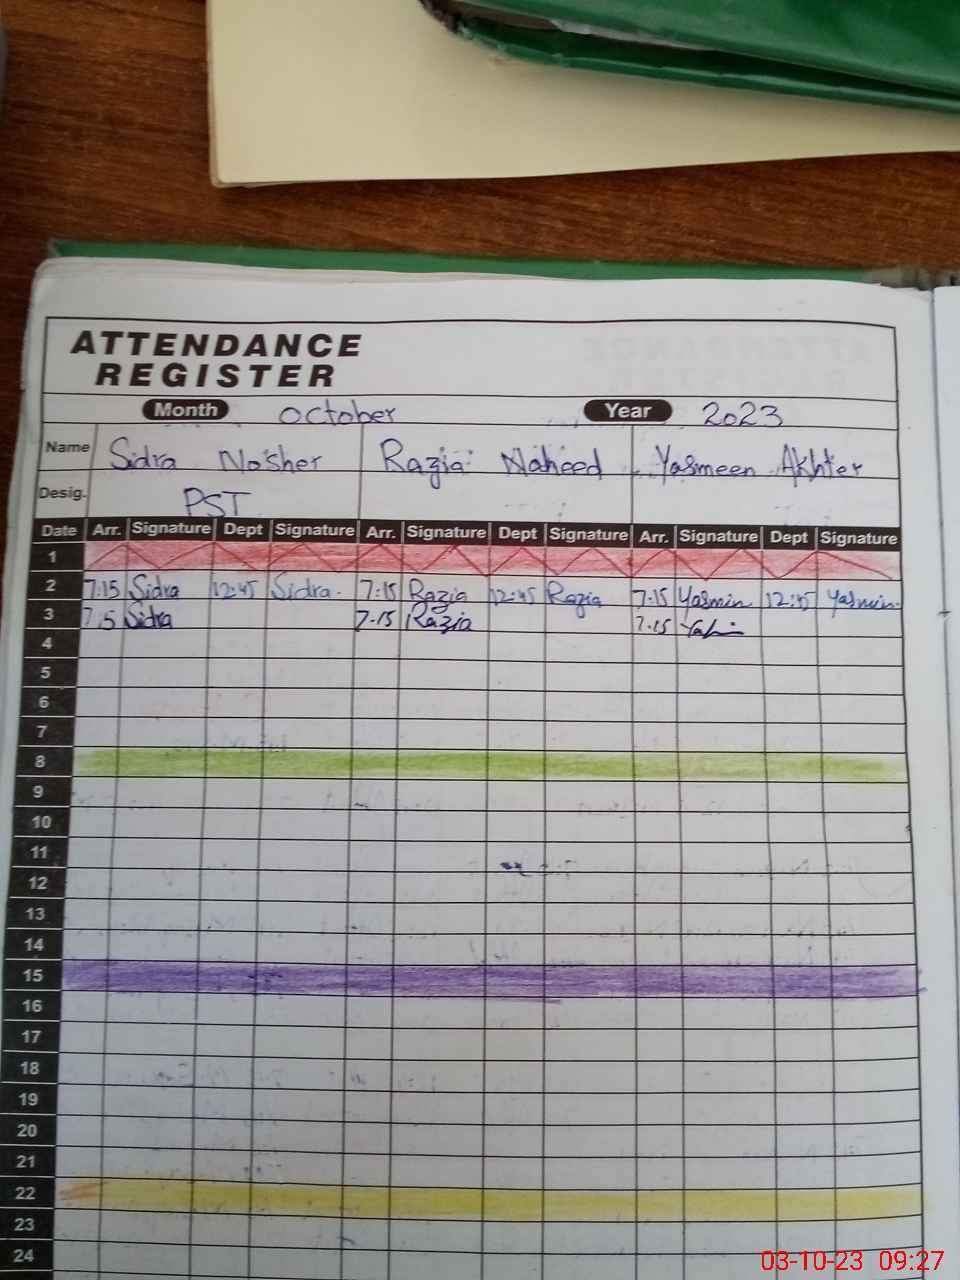 ATTENDANCE
REGISTER
Month October Year 2023
Name Sidra Nosher Razia Naheed Yasmeen Akhter
Desig. PST
Date Arr. Signature Dept Signature Arr. Signature Dept Signature Arr. Signature Dept Signature
1
2 7:15 Sidra 12:45 Sidra. 7:15 Razia 12:45 Razia 7:15 Yasmin 12:45 Yasmin.
3 7.15 Sidra 7.15 Razia 7.15
4
5
6
7
8
9
10
11
12
13
14
15
16
17
18
19
20
21
22
23
24
03-10-23 09:27